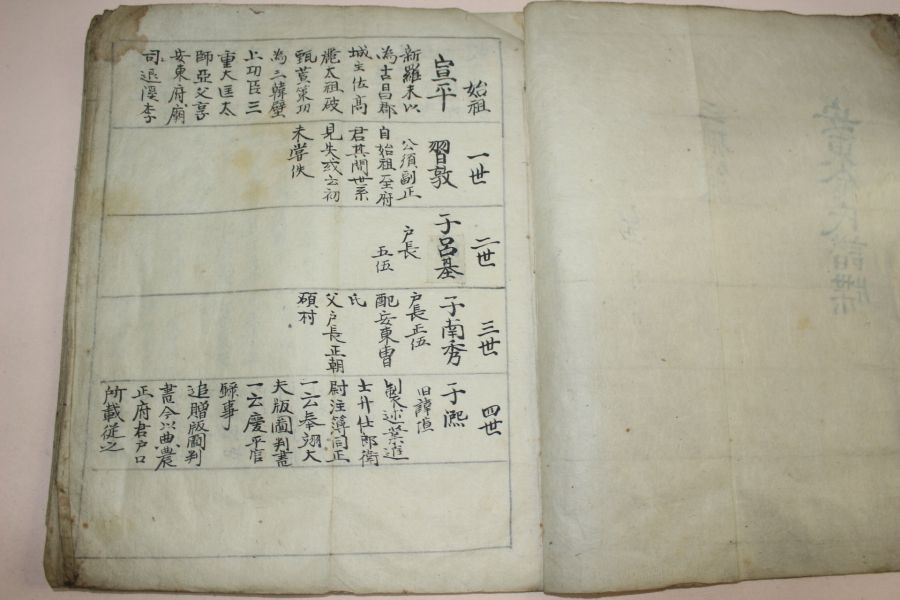 始祖
宣平
新羅末以
為古昌郡
城主佐高
麗太祖破
甄萱策功
為三韓壁
上功臣三
重大匡太
師亞父享
安東府廟
司退溪李
一世
習敦
公須副正
自始祖至府
君其間世系
見失或云初
未嘗佚
二世
子呂基
户長
正伍
三世
子南秀
户長正伍
配安東曺
氏
父户長正朝
碩村
四世
子熙
旧諱恒
製述業進
士升仕郎衛
尉注簿同正
一云奉翊大
夫版圖判書
一云慶平宮
録事
追贈版圖判
書今以典農
正府君户口
所載従之